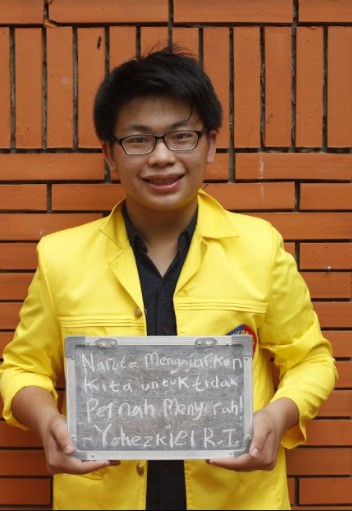 Naruto Mengajarkan
Kita untuk tidak
Pernah Menyerah!
- Yohezkiel R.I.